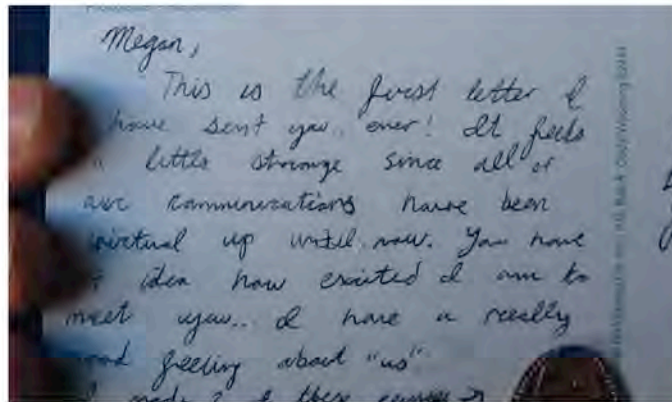 Megan,
This is the first letter I
have sent you.. ever! It feels
a little strange since all of
our communications have been
virtual up until now. You have
no idea how excited I am to
meet you.. I have a really
good feeling about "us".
I made 2 of these